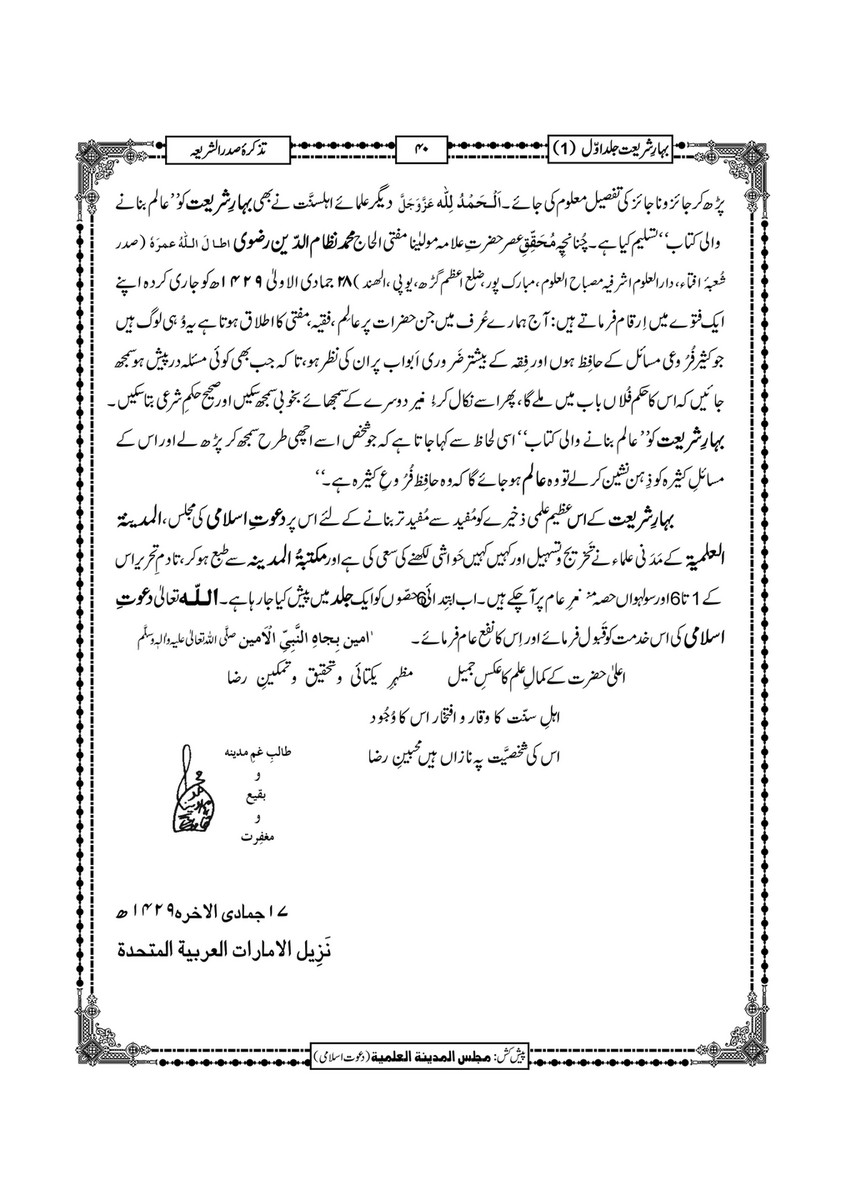 بہارِشریعت جلد اوّل (1)
۴۰
تذکرۂ صدر الشریعہ
پڑھ کر جائز و ناجائز کی تفصیل معلوم کی جائے۔ اَلْحَمْدُ لِلّٰه عَزَّوَجَلَّ دیگر علمائے اہلسنّت نے بھی بہارِشریعت کو ’’عالم بنانے
والی کتاب‘‘ تسلیم کیا ہے۔ چُنانچِہ مُحَقِّقِ عصر حضرتِ علامہ مولیٰنا مفتی الحاج محمد نظام الدّین رضوی اطال اللّٰه عمرَہٗ (صدر
شُعبۂ افتاء، دارالعلوم اشرفیہ مصباح العلوم، مبارک پور، ضلع اعظم گڑھ، یوپی، الھند) ۲۸ جمادی الاولیٰ ۱۴۲۹ھ کو جاری کردہ اپنے
ایک فتوے میں اِرقام فرماتے ہیں: آج ہمارے عُرف میں جن حضرات پر عالِم، فقیہ، مفتی کا اطلاق ہوتا ہے یہ وُہی لوگ ہیں
جو کثیر فُرُوعی مسائل کے حافِظ ہوں اور فِقہ کے بیشتر ضَروری اَبواب پر ان کی نظر ہو، تا کہ جب بھی کوئی مسئلہ در پیش ہو سمجھ
جائیں کہ اس کا حکم فُلاں باب میں ملے گا، پھر اسے نکال کر دوسرے کے سمجھائے بخوبی سمجھ سکیں اور صحیح حکمِ شرعی بتا سکیں۔
بہارِشریعت کو ’’عالم بنانے والی کتاب‘‘ اسی لحاظ سے کہا جاتا ہے کہ جو شخص اسے اچھی طرح سمجھ کر پڑھ لے اور اس کے
مسائلِ کثیرہ کو ذِہن نشین کر لے تو وہ عالم ہو جائے گا کہ وہ حافِظِ فُرُوعِ کثیرہ ہے۔‘‘
بہارِشریعت کے اس عظیم علمی ذَخیرے کو مُفید سے مُفید تر بنانے کے لئے اس پر دعوتِ اسلامی کی مجلس، المدینۃ
العلمیۃ کے مَدَنی علماء نے تَخریج و تسہیل اور کہیں کہیں حَواشی لکھنے کی سعی کی ہے اور مکتبۃُ المدینہ سے طبع ہو کر، تادمِ تحریر اس
کے 1 تا 6 اور سولہواں حصہ منظرِ عام پر آ چکے ہیں۔ اب ابتدائی 6 حصّوں کو ایک جلد میں پیش کیا جا رہا ہے۔ اللّٰہ تعالیٰ دعوتِ
اسلامی کی اس خدمت کو قَبول فرمائے اور اِس کا نفع عام فرمائے۔ اٰمین بِجاہِ النَّبِیِّ الْاَمین صلَّی اللہ تعالیٰ علیہ واٰلہٖ وسلَّم
اعلیٰ حضرت کے کمالِ علم کا عکسِ جمیل مظہرِ یکتائی و تحقیق و تمکینِ رضا
اہلِ سنّت کا وقار و افتخار اس کا وُجُود
اس کی شخصیَّت پہ نازاں ہیں محبینِ رضا
طالبِ غمِ مدینہ
و
بقیع
و
مغفِرت
۱۷ جمادی الاخرہ ۱۴۲۹ھ
نَزِیل الامارات العربیۃ المتحدۃ
پیش کش: مجلس المدینۃ العلمیۃ (دعوت اسلامی)